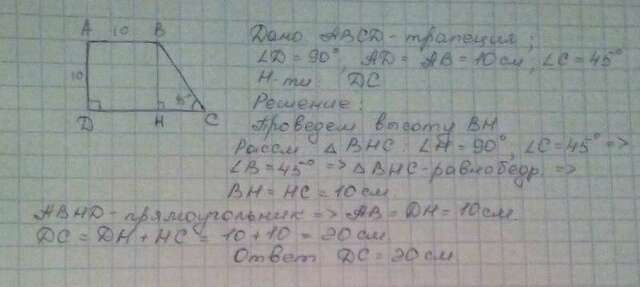 A 10 B
10
45°
D H C
Дано ABCD-трапеция;
∠D = 90°, AD = AB = 10 см, ∠C = 45°
Н-ти: DC
Решение:
Проведем высоту BH
Рассм △ BHC: ∠H = 90°, ∠C = 45° =>
∠B = 45° => △BHC-равнобедр. =>
BH = HC = 10 см
ABHD-прямоугольник => AB = DH = 10 см.
DC = DH + HC = 10 + 10 = 20 см
Ответ DC = 20 см